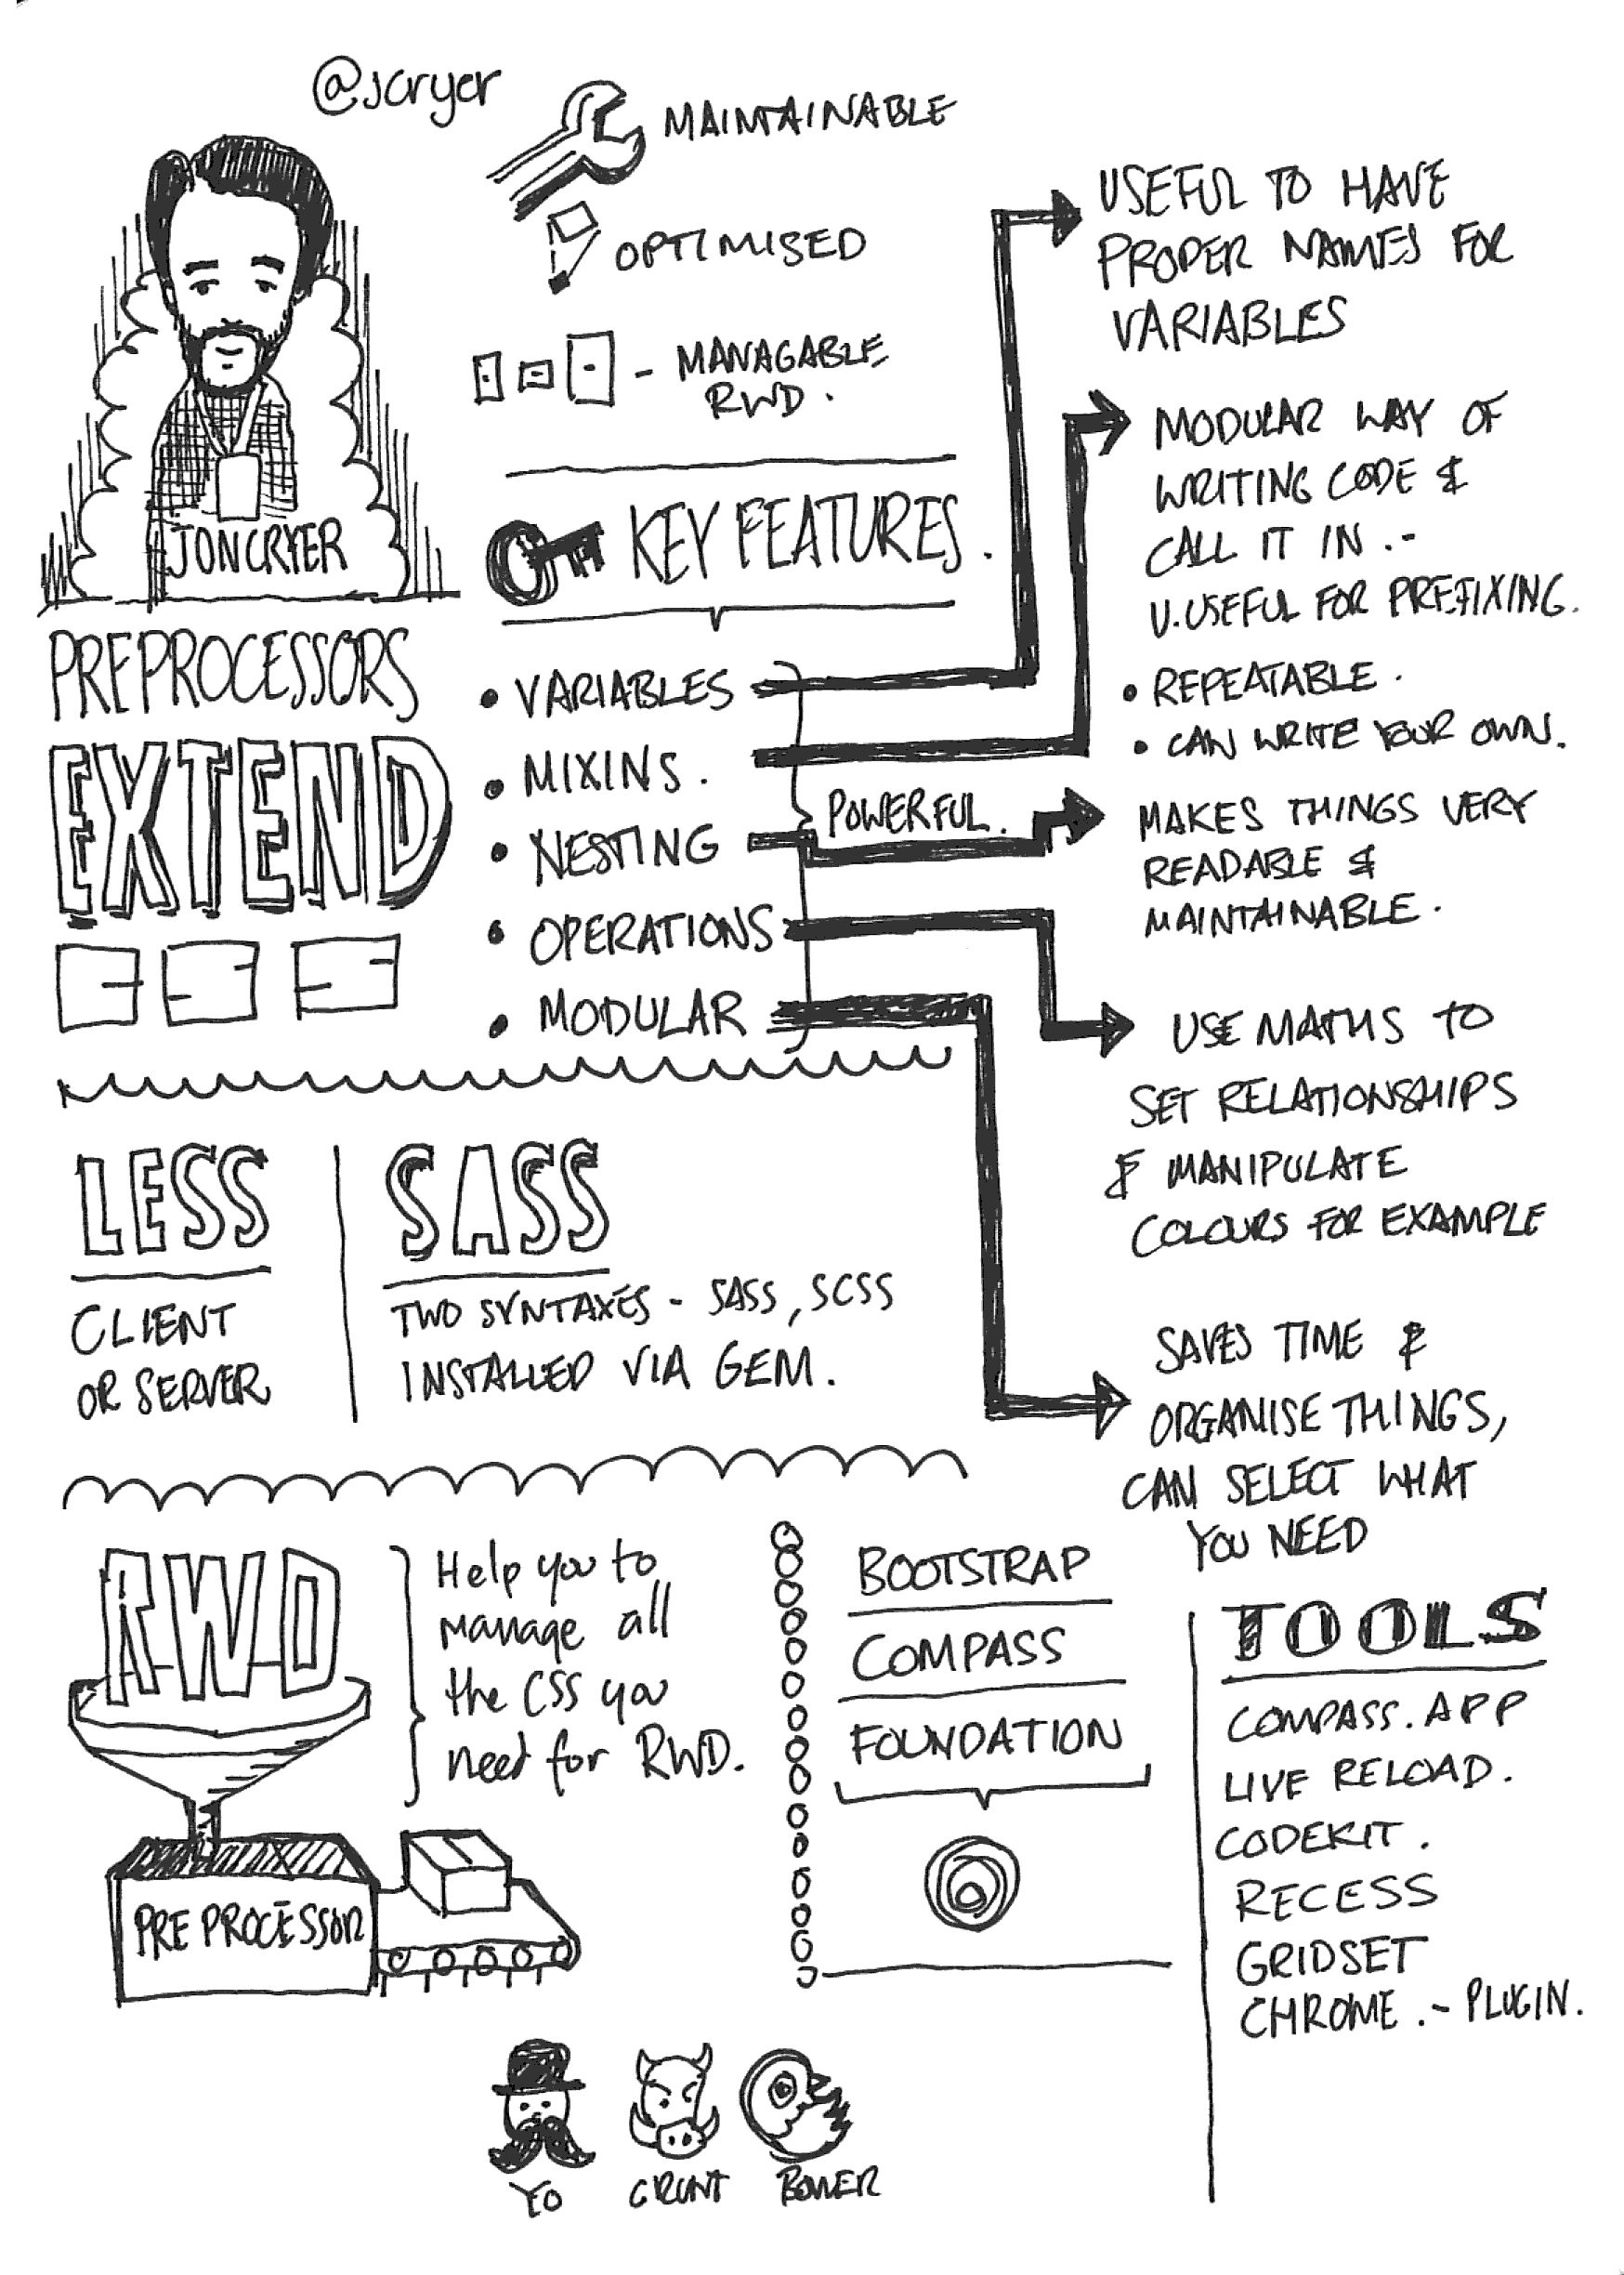 @jcryer
JON CRYER
MAINTAINABLE
OPTIMISED
- MANAGABLE
RWD.
KEY FEATURES.
PREPROCESSORS
EXTEND
• VARIABLES
• MIXINS.
• NESTING
• OPERATIONS
• MODULAR
POWERFUL.
USEFUL TO HAVE
PROPER NAMES FOR
VARIABLES
MODULAR WAY OF
WRITING CODE &
CALL IT IN .-
V.USEFUL FOR PREFIXING.
• REPEATABLE.
• CAN WRITE YOUR OWN.
MAKES THINGS VERY
READABLE &
MAINTAINABLE.
USE MATHS TO
SET RELATIONSHIPS
& MANIPULATE
COLOURS FOR EXAMPLE
SAVES TIME &
ORGANISE THINGS,
CAN SELECT WHAT
YOU NEED
LESS
CLIENT
OR SERVER
SASS
TWO SYNTAXES - SASS, SCSS
INSTALLED VIA GEM.
RWD
PREPROCESSOR
Help you to
manage all
the CSS you
need for RWD.
BOOTSTRAP
COMPASS
FOUNDATION
TOOLS
COMPASS.APP
LIVE RELOAD.
CODEKIT.
RECESS
GRIDSET
CHROME.- PLUGIN.
YO
GRUNT
BOWER